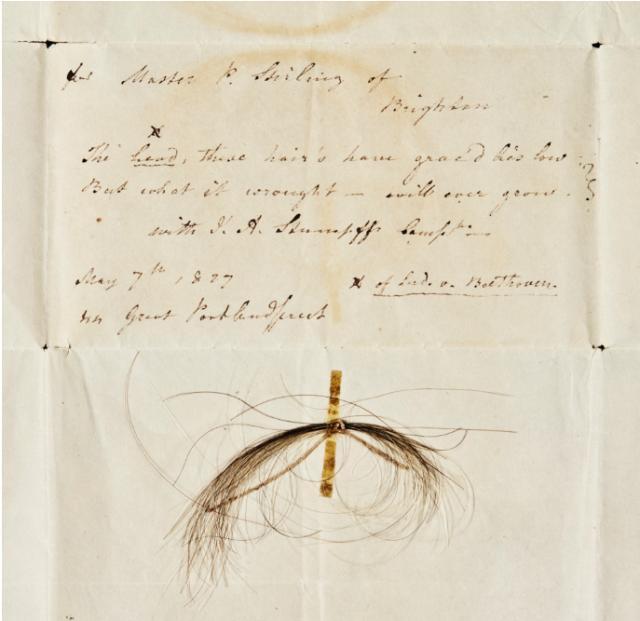 for Master P. Stirling of
Brighton
x
The head, these hair's have grac'd lies low
But what it wrought – will ever grow.
with J. A. Stumpff's Compts –
May 7th 1827
x of Lud. v. Beethoven.
44 Great Portland Street